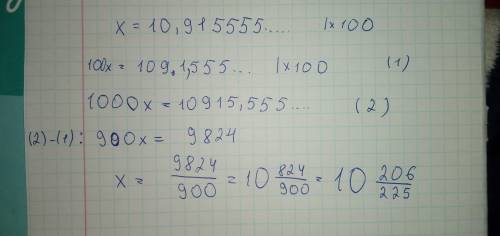 x = 10,915555..... | x 100
100x = 1091,555... | x 100 (1)
1000x = 10915,555.... (2)
(2)-(1): 900x = 9824
x = 9824/900 = 10 824/900 = 10 206/225